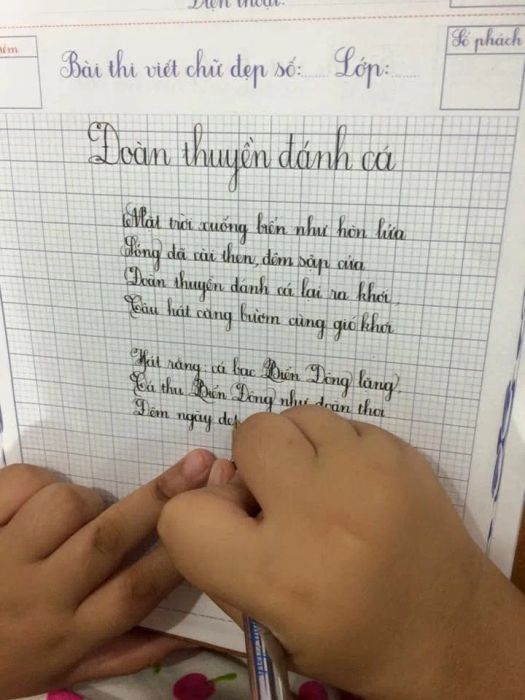 Điện thoại:
Số phách
Bài thi viết chữ đẹp số:...... Lớp:......
Đoàn thuyền đánh cá
Mặt trời xuống biển như hòn lửa
Sóng đã cài then, đêm sập cửa
Đoàn thuyền đánh cá lại ra khơi,
Câu hát căng buồm cùng gió khơi
Hát rằng: cá bạc Biển Đông lặng,
Cá thu Biển Đông như đoàn thoi
Đêm ngày dệt